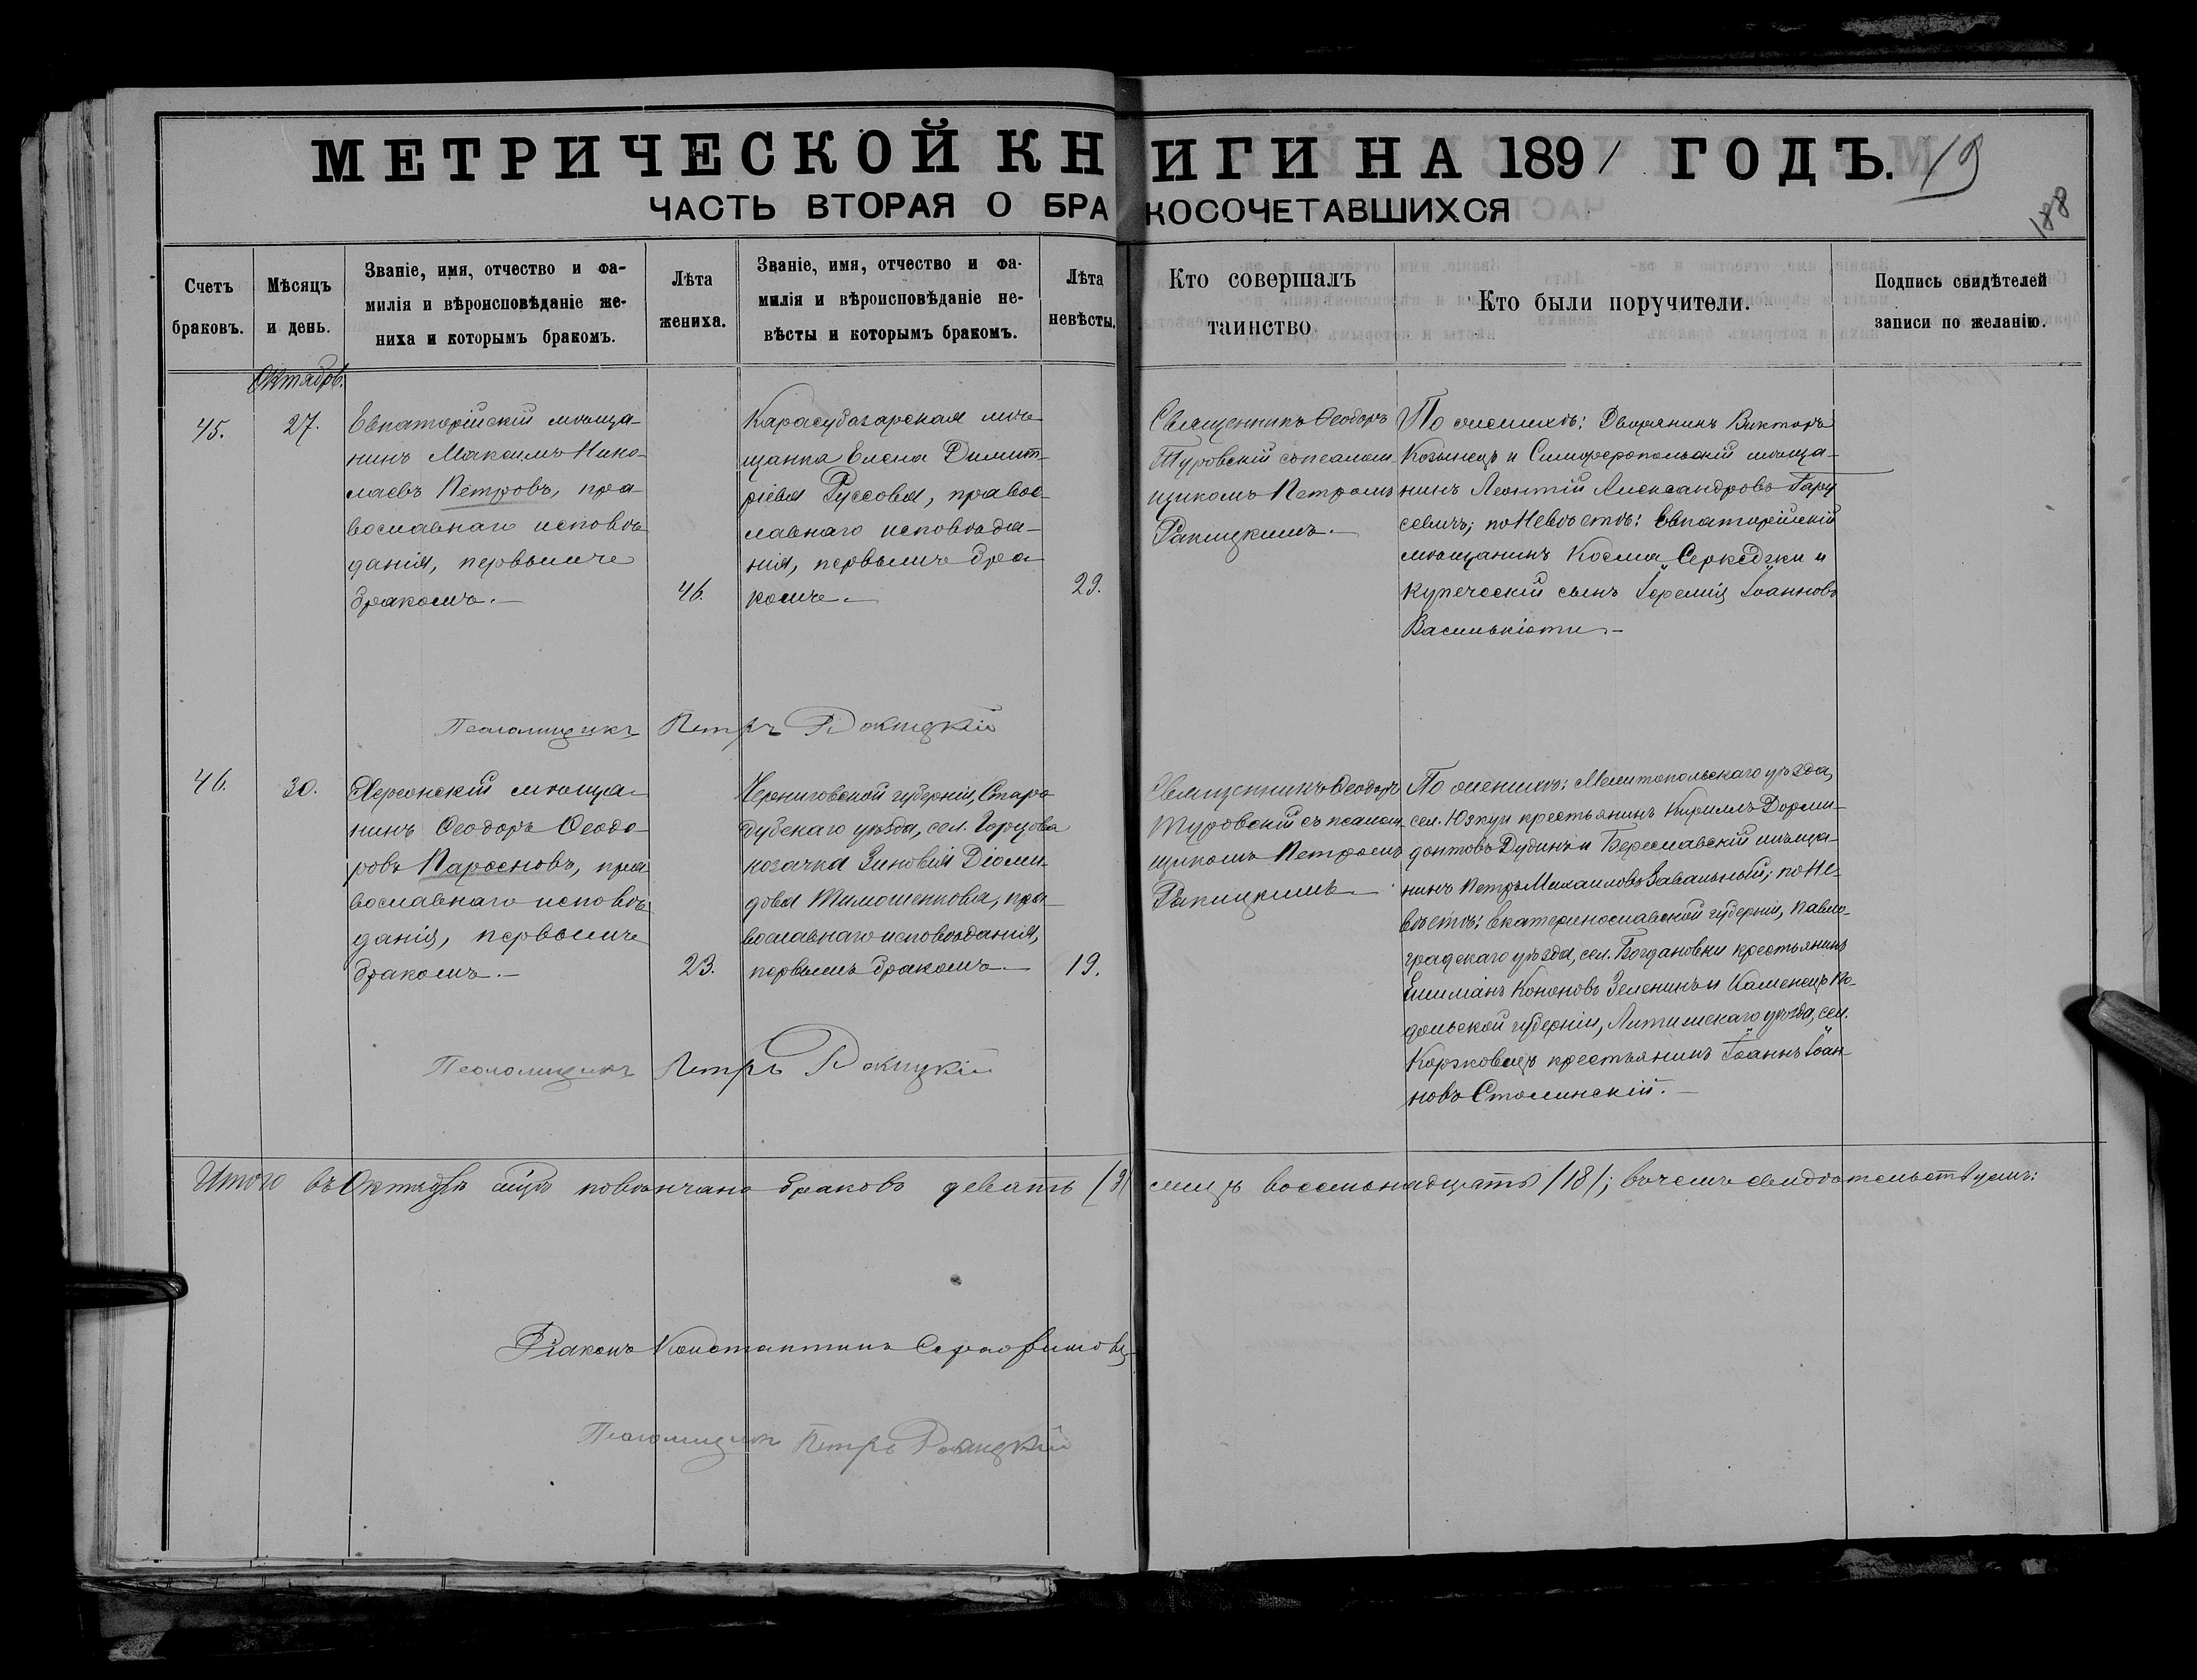 МЕТРИЧЕСКОЙ КНИГИ НА 1891 ГОДЪ. 19
188
ЧАСТЬ ВТОРАЯ О БРАКОСОЧЕТАВШИХСЯ
Счетъ
браковъ.
Мѣсяцъ
и день.
Званіе, имя, отчество и фа-
милія и вѣроисповѣданіе же-
ниха и которымъ бракомъ.
Лѣта
жениха.
Званіе, имя, отчество и фа-
милія и вѣроисповѣданіе не-
вѣсты и которымъ бракомъ.
Лѣта
невѣсты.
Кто совершалъ
таинство
Кто были поручители.
Подпись свидѣтелей
записи по желанію.
Октябрь.
45.
27.
Евпаторійскій мѣща-
нинъ Максимъ Нико-
лаевъ Петровъ, пра-
вославнаго исповѣ-
данія, первымъ
бракомъ.—
46.
Карасубазарская мѣ-
щанка Елена Димит-
ріева Руссова, правос-
лавнаго исповѣда-
нія, первымъ бра-
комъ.—
29.
Священникъ Ѳеодоръ
Туровскій съ псалом-
щикомъ Петромъ
Ракицкимъ.—
По женихѣ: Дворянинъ Викторъ
Козынецъ и Симферопольскій мѣща-
нинъ Леонтій Александровъ Гару
севичъ; по Невѣстѣ: Евпаторійскій
мѣщанинъ Косма Серкеджи и
купеческій сынъ Іеремія Іоанновъ
Василькіоти.—
Псаломщикъ Петръ Ракицкій
46.
30.
Херсонскій мѣща-
нинъ Ѳеодоръ Ѳеодо-
ровъ Парѳеновъ, пра
вославнаго исповѣ-
данія, первымъ
бракомъ.—
23.
Черниговской губерніи, Старо
дубскаго уѣзда, сел.
козачка Зиновія Діоми
дова Тимошенкова, пра-
вославнаго исповѣданія,
первымъ бракомъ.—
19.
Священникъ Ѳеодоръ
Туровскій съ псалом-
щикомъ Петромъ
Ракицкимъ.—
По женихѣ: Мелитопольскаго уѣзда,
сел. Юзкуи крестьянинъ Кириллъ Дорми-
донтовъ Дудинъ и Бериславскій мѣща-
нинъ Петръ Михаиловъ Завальный; по Не-
вѣстѣ: Екатеринославской губерніи, Павло-
градскаго уѣзда, сел. Богдановки крестьянинъ
Емиліанъ Кононовъ Зеленинъ и Каменецъ По-
дольской губерніи, Литинскаго уѣзда, сел.
Коржовецъ крестьянинъ Іоаннъ Іоан-
новъ Столинскій.—
Псаломщикъ Петръ Ракицкій
Итого въ Октябрѣ м-цѣ повѣнчано браковъ девять /9/ лицъ восемнадцать /18/; въ чемъ свидѣтельствуемъ:
Діаконъ Константинъ Серафимовъ
Псаломщикъ Петръ Ракицкій